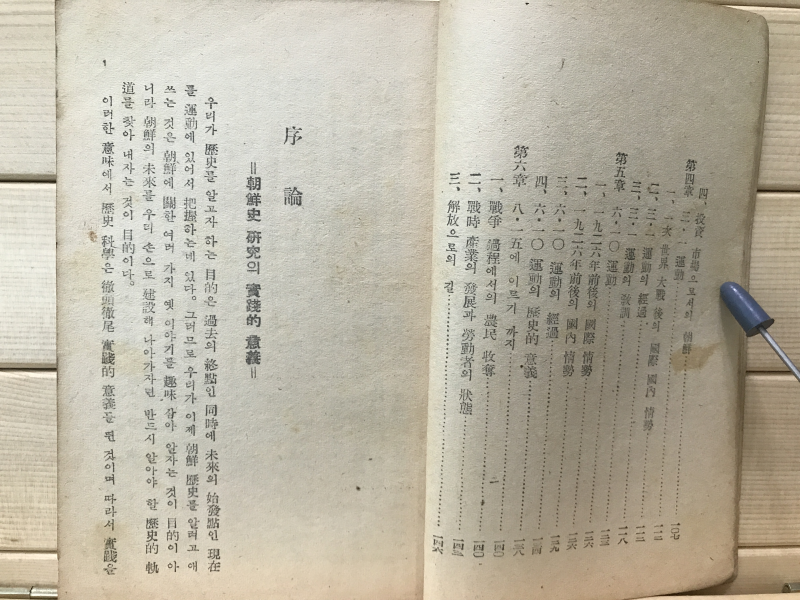 四、投資 市場으로서의 朝鮮 一〇七
第四章 三·一 運動
一、一次 世界 大戰 後의 國際 國內 情勢
二、三·一 運動의 經過
三、三·一 運動의 敎訓 一一八
第五章 六·一〇 運動
一、一九二六年前後의 國際 情勢
二、一九二六年前後의 國內 情勢
三、六·一〇 運動의 經過
四、六·一〇 運動의 歷史的 意義
第六章 八·一五에 이르기 까지
一、戰爭 過程에서의 農民 收奪 一四〇
二、戰時 產業의 發展과 勞動者의 狀態
三、解放으로의 길 一四六
二
序論
=朝鮮史 硏究의 實踐的 意義=
우리가 歷史를 알고자 하는 目的은 過去의 終點인 同時에 未來의 始發點인 現在
를 運動에 있어서 把握하는데 있다。그러므로 우리가 이제 朝鮮 歷史를 알려고 애
쓰는 것은 朝鮮에 關한 여러 가지 옛 이야기를 趣味 삼아 알자는 것이 目的이 아
니라 朝鮮의 未來를 우리 손으로 建設해 나아가자면 반드시 알아야 할 歷史的 軌
道를 찾아 내자는 것이 目的이다。
이러한 意味에서 歷史 科學은 徹頭徹尾 實踐的 意義를 띈 것이며 따라서 實踐을
1